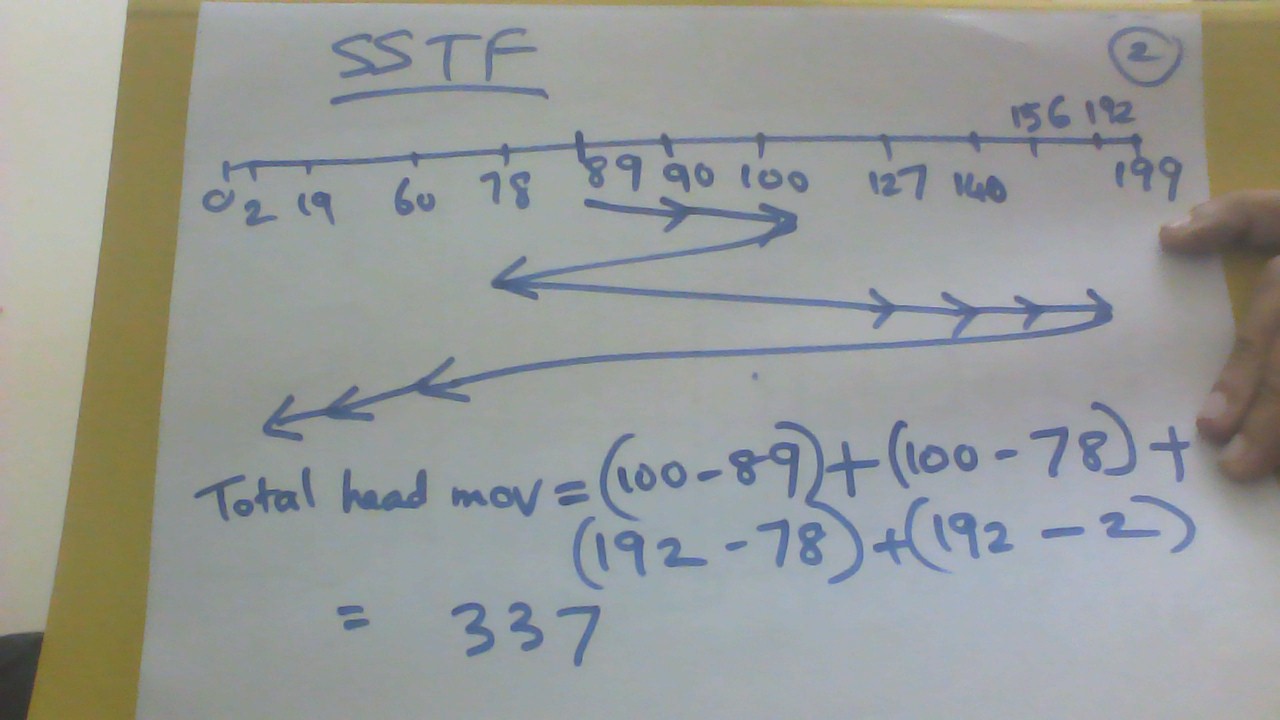 SSTF
2
156 192
0 2 19 60 78 89 90 100 127 140 199
Total head mov = (100-89)+(100-78)+
(192-78)+(192-2)
= 337